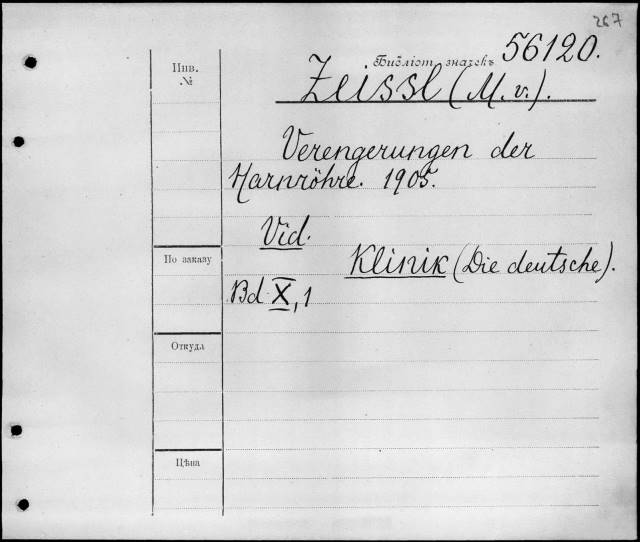 267
Инв.
№
Библіот. значекъ 56120.
Zeissl (M. v.).
Verengerungen der
Harnröhre. 1905.
Vid.
По заказу
Klinik (Die deutsche).
Bd X, 1
Откуда
Цѣна